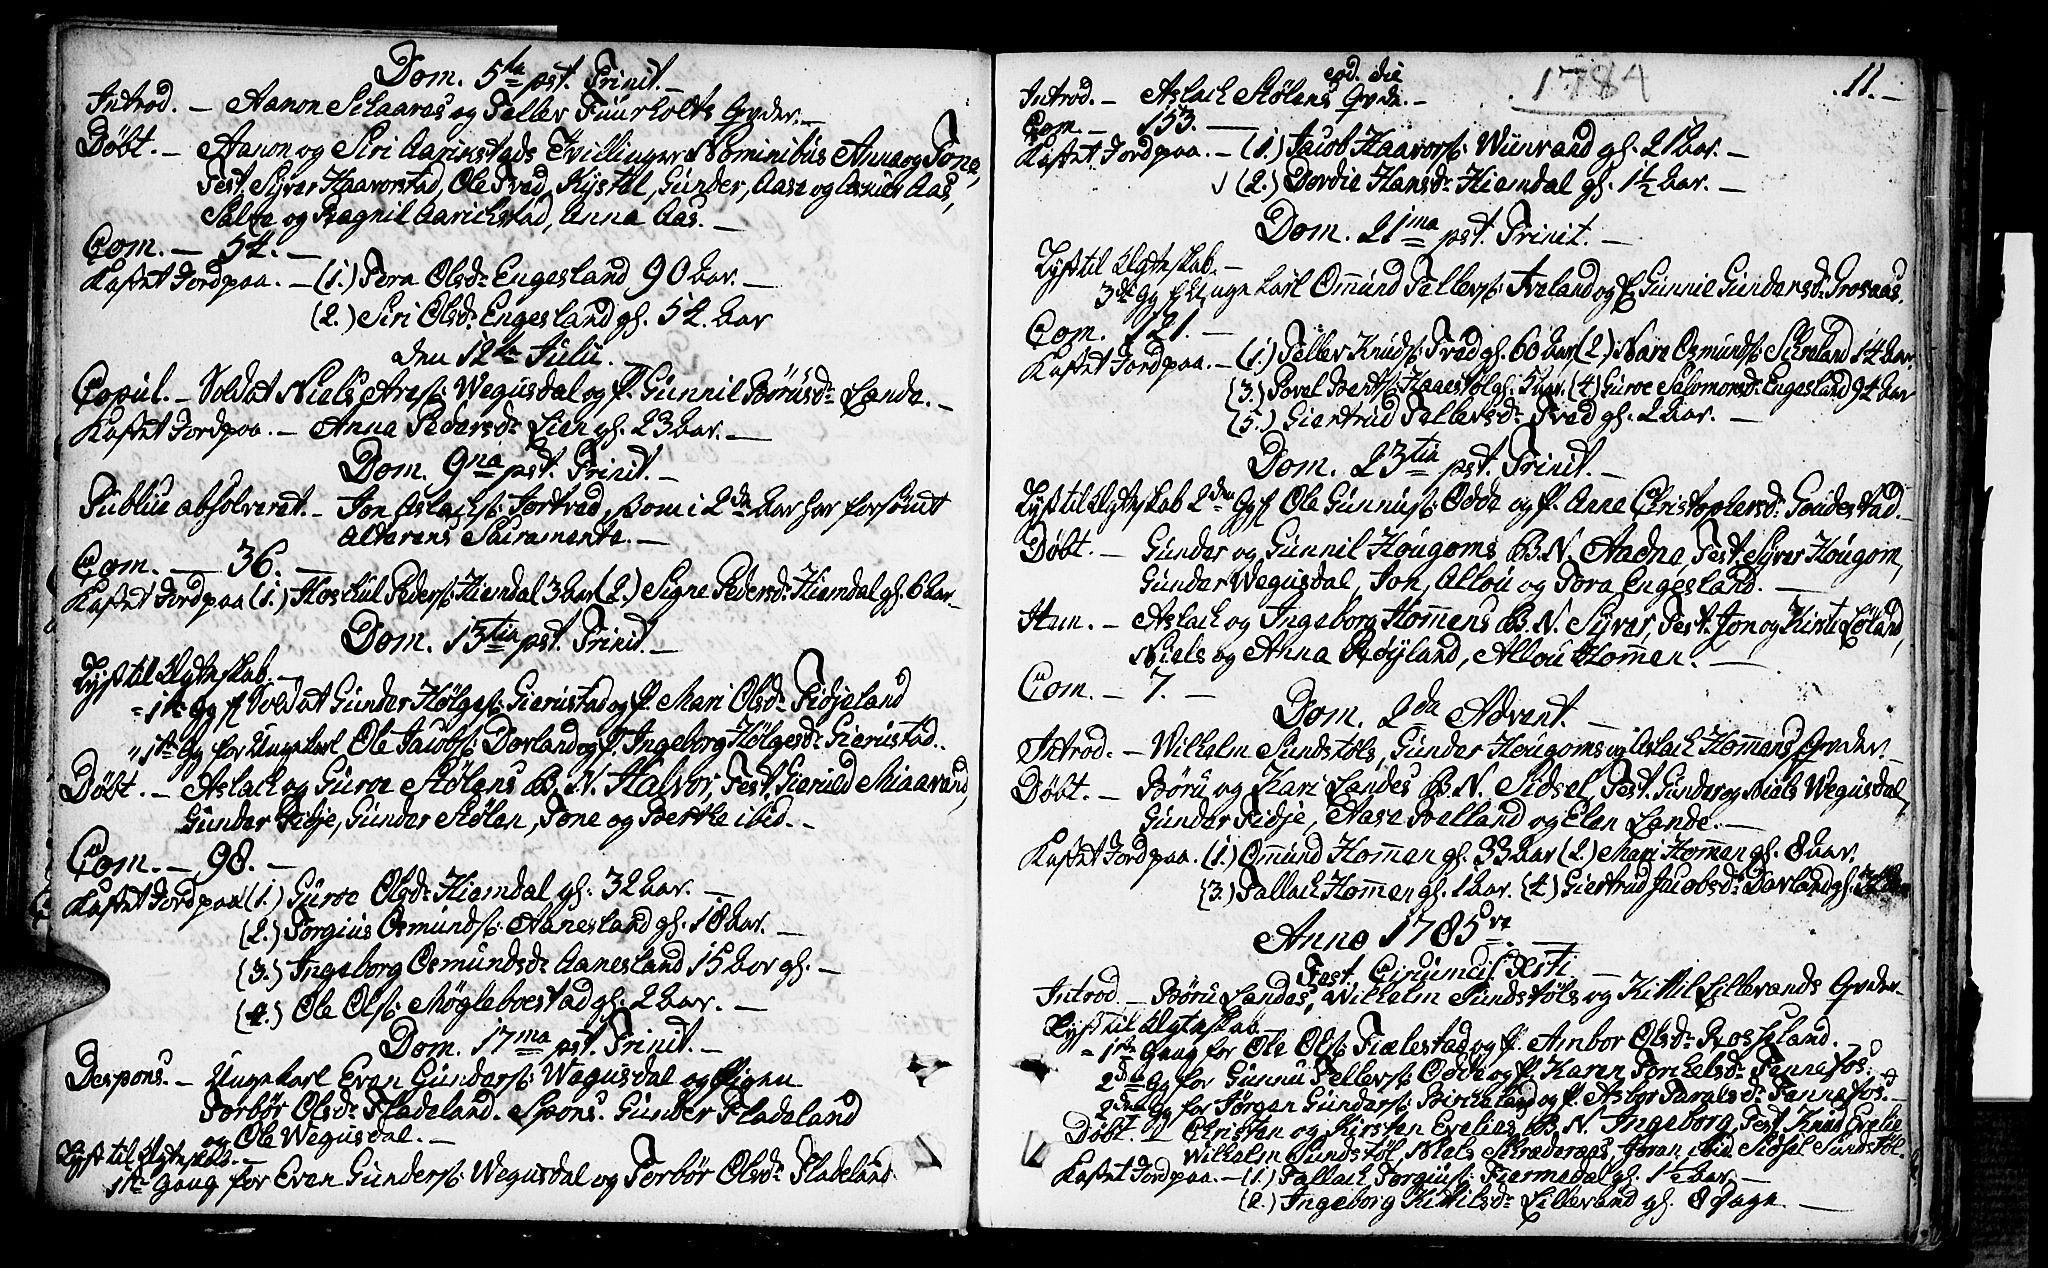 Dom. 5ta pst. Trinit. –
Introd. – Aanon Sclaaraas og Tellev Fuurholts Qvder. –
Döbt. – Aanon og Siri Aarikstads Tvillinger Nominibus Anna og Tone,
Test. Syver Haavorstad, Ole Tved, Kystol, Gunder, Aase og Aas,
Salve og Ragnil Aarichstad, Anna Aas. –
Com. – 54. –
Kastet Jord paa. – (1.) Tora Olsdr Engesland 90 aar. –
(2.) Siri Olsdr Engesland gl. 54. aar
den 12te Julii. –
Copul. – Soldat Niels Ares: Wegusdal og P. Gunnil Börusdr Lande. –
Kastet Jord paa. – Anna Pedersdr Lien gl. 23 aar. –
Dom. 9na pst. Trinit. –
Publicè absolveret. – Jon Aslachs: Tortved, som i 2de aar har forsömt
Altarens Sacramente. –
Com. – 36. –
Kastet Jord paa (1.) Hoskul Peders: Hiemdal 3 aar (2.) Signe Pedersdr Hiemdal gl. 6 aar. –
Dom. 13tia pst. Trinit. –
Lyst til Ægteskab. –
1te Gg f Soldat Gunder Hölges: Gierustad og P. Mari Olsdr Fidjeland
1te Gg for Ungekarl Ole Jacobs: Dovland og P. Ingeborg Hölgesdr Gierustad.
Döbt. – Aslach og Guroe Stölens B. N. Halvor, Test. Gieruld Miaavand,
Gunder Fidje, Gunder Stölen, Tone og Berthe ibid. –
Com. – 98. –
Kastet Jord paa (1.) Guroe Olsdr Hiemdal gl. 32 aar. –
(2.) Torgius Osmunds: Aanesland gl. 18 aar. –
(3.) Ingeborg Osmundsdr Aanesland 15 aar gl. –
(4.) Ole Ols: Mögleboestad gl. 2 aar. –
Dom. 17ma pst. Trinit. –
Despons. – Ungekarl Even Gunders: Wegusdal og Pigen
Torbör Olsdr Fladeland. Spons. Gunder Fladeland
og Ole Wegusdal. –
Lyst til Ægteskab. –
1te Gang for Even Gunders: Wegusdal og Torbör Olsdr Fladeland.
1784
11. –
eod. die
Introd. – Aslach Stölens Qvde. –
Com. – 153. –
Kastet Jord paa. – (1.) Jacob Haavors: Wiinrand gl. 21 aar. –
(2.) Dordie Hansdr Hiemdal gl. 1½ aar. –
Dom. 21ma pst. Trinit. –
Lyst til Ægteskab. –
3die Gg f Ungekarl Omund Tellevs: Iveland og P. Gunnil Gundersdr Grosaas.
Com. 121. –
Kastet Jord paa. – (1.) Tellev Knuds: Tved gl. 60 aar (2.) Nare Osmunds: Skreland 14 aar.
(3.) Povel Bents: Haaestöl gl. 5 aar. (4.) Guroe Salomonsdr Engesland 94 aar
(5.) Giertrud Tellevsdr Tved gl. 2 aar. –
Dom. 23tia pst. Trinit. –
Lyst til Ægteskab 2den Gg f Ole Gunnus: Odde og P. Anne Christophersdr Goudestad. –
Döbt. – Gunder og Gunnil Hougoms B. N. Aadne, Test. Syver Hougom,
Gunder Wegusdal, Jon, Allou og Tora Engesland. –
Item. – Aslach og Ingeborg Hommens B. N. Syver, Test. Jon og Kirsti Löland,
Niels og Anna Röyland, Allou Hommen. –
Com. – 7. –
Dom. 2da Advent. –
Introd. – Wilhelm Sundstöls, Gunder Hougoms og Aslach Hommens Qvder. –
Döbt. – Böru og Kari Landes B. N. Sidsel, Test. Gunder og Niels Wegusdal,
Gunder Fidje, Aase Velland og Elen Lande. –
Kastet Jord paa. (1.) Omund Hommen gl. 33 aar (2.) Mari Hommen gl. 8 aar.
(3.) Tallach Hommen gl. 1 aar. (4.) Giertrud Jacobsdr Dovland gl.
Anno 1785
Fest. Circumcis. Xsti. –
Introd. – Böru Landes, Wilhelm Sundstöls og Kittil Lillevands Qvder. –
Lyst til Ægteskab
1te Gang for Ole Ols: Fiælestad og P. Ambor Olsdr Rosseland.
2den Gg for Gunnu Tellevs: Odde og P. Karen Torkelsdr Fennefos.
2den Gg for Jörgen Gunders: Bircheland og P. Asbor Taralsdr Fennefos. –
Döbt. – Christen og Kirsten Evelies B. N. Ingeborg, Test. Knud Evelie
Wilhelm Sundstöl, Niels Skræderaas, Joran ibid. Sidsel Sundstöl.
Kastet Jord paa. – (1.) Tallach Torgius: Fiermedal gl. 1½ aar. –
(2.) Ingeborg Kittilsdr Lillevand gl. 8 dage. –